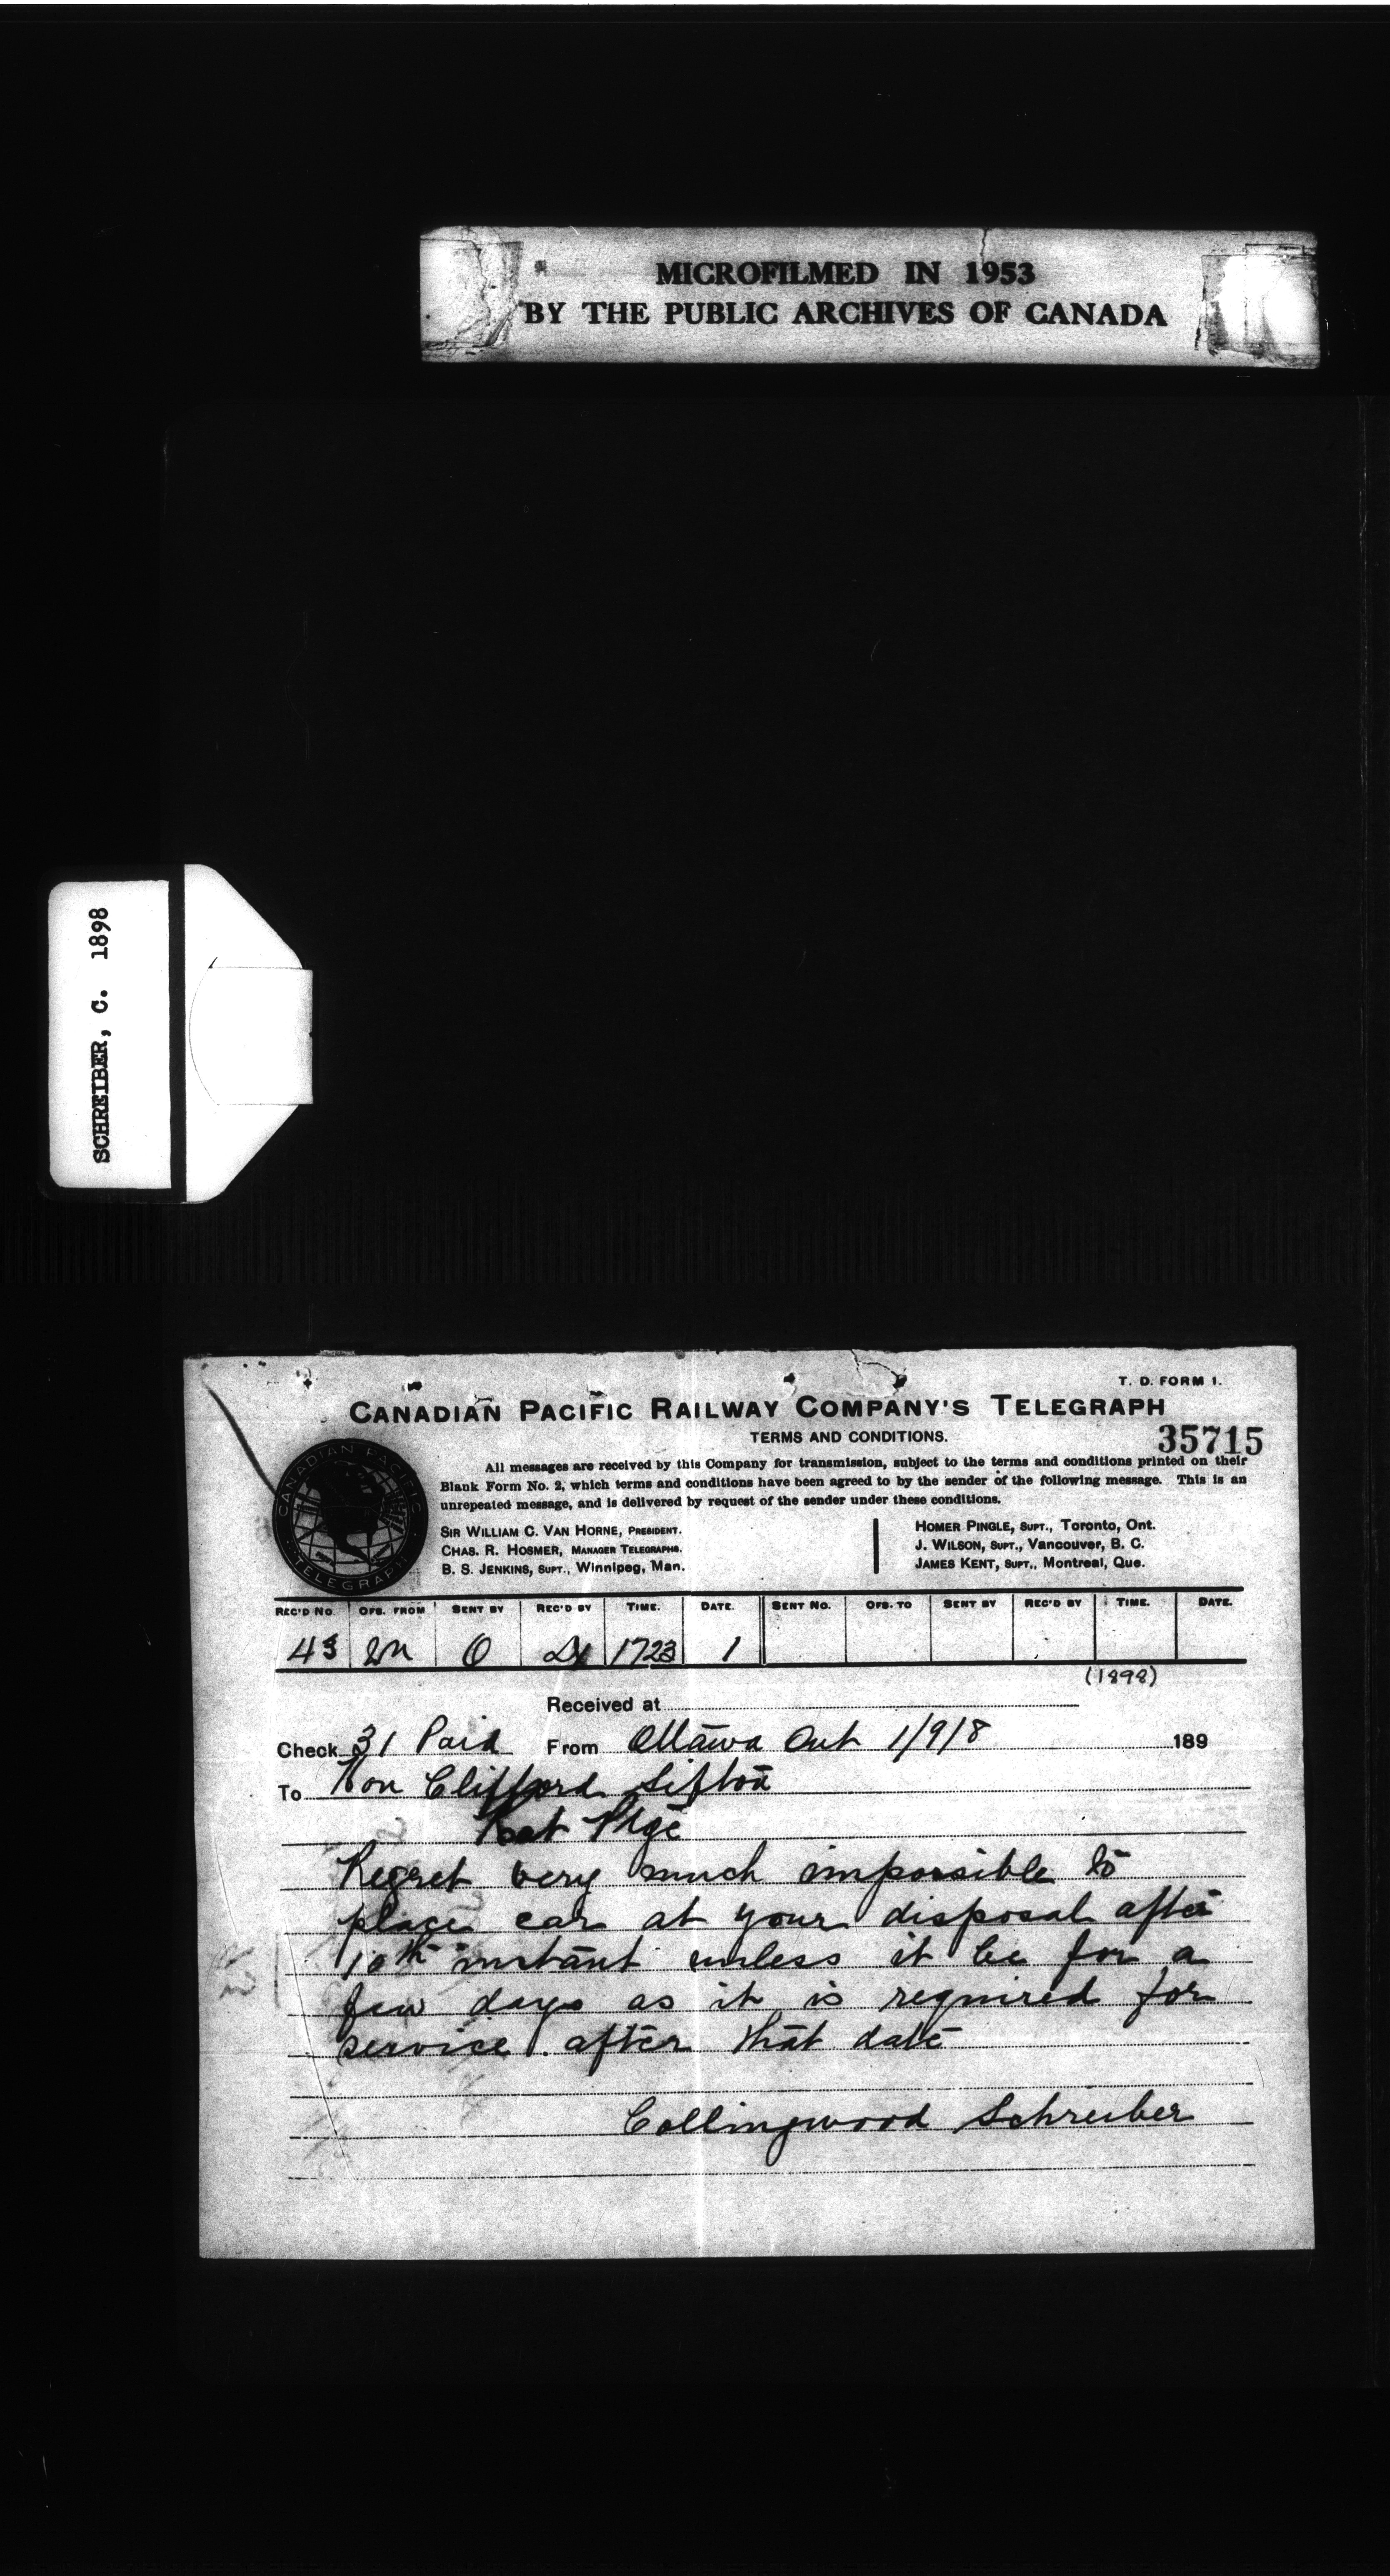 MICROFILMED IN 1953
BY THE PUBLIC ARCHIVES OF CANADA
SCHREIBER, C. 1898
T. D. FORM 1.
CANADIAN PACIFIC RAILWAY COMPANY'S TELEGRAPH
TERMS AND CONDITIONS.
35715
All messages are received by this Company for transmission, subject to the terms and conditions printed on their
Blank Form No. 2, which terms and conditions have been agreed to by the sender of the following message. This is an
unrepeated message, and is delivered by request of the sender under these conditions.
CANADIAN PACIFIC
TELEGRAPH
SIR WILLIAM C. VAN HORNE, PRESIDENT.
CHAS. R. HOSMER, MANAGER TELEGRAPHS.
B. S. JENKINS, SUPT., Winnipeg, Man.
HOMER PINGLE, SUPT., Toronto, Ont.
J. WILSON, SUPT., Vancouver, B. C.
JAMES KENT, SUPT., Montreal, Que.
REC'D NO. OFS. FROM SENT BY REC'D BY TIME. DATE. SENT NO. OFS. TO SENT BY REC'D BY TIME. DATE.
43 O 1723 1
(1898)
Received at
Check 31 Paid From Ottawa Ont 1/9/8 189
To Hon Clifford Sifton
Rat Ptge
Regret very much impossible to
place car at your disposal after
10th instant unless it be for a
few days as it is required for
service after that date
Collingwood Schreiber